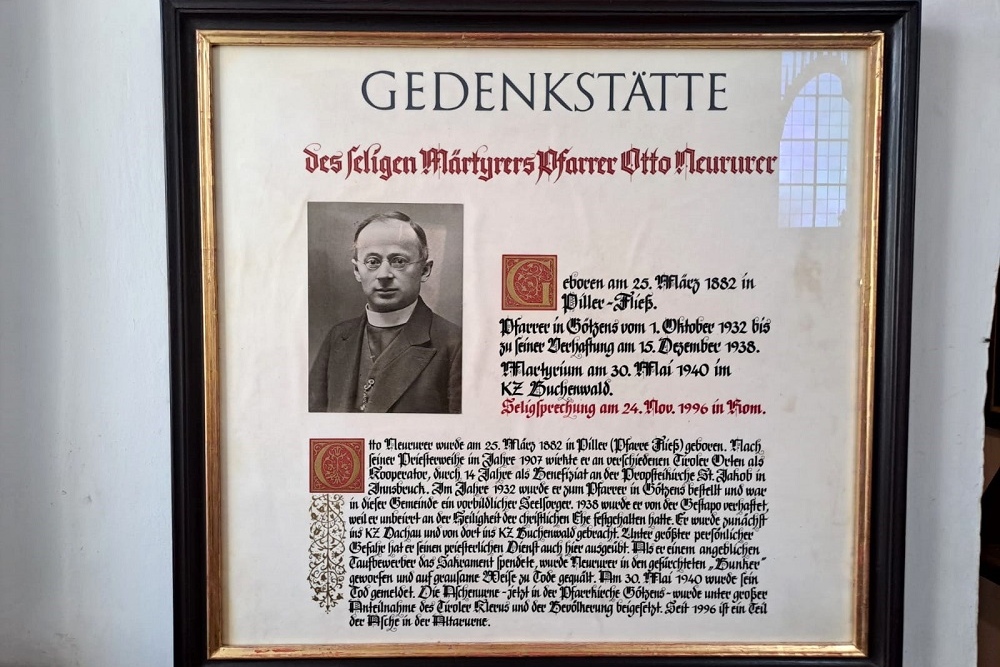 GEDENKSTÄTTE
des seligen Märtyrers Pfarrer Otto Neururer
Geboren am 25. März 1882 in
Piller-Fließ.
Pfarrer in Götzens vom 1. Oktober 1932 bis
zu seiner Verhaftung am 15. Dezember 1938.
Martyrium am 30. Mai 1940 im
KZ Buchenwald.
Seligsprechung am 24. Nov. 1996 in Rom.
Otto Neururer wurde am 25. März 1882 in Piller (Pfarre Fließ) geboren. Nach
seiner Priesterweihe im Jahre 1907 wirkte er an verschiedenen Tiroler Orten als
Kooperator, durch 14 Jahre als Benefiziat an der Propsteikirche St. Jakob in
Innsbruck. Im Jahre 1932 wurde er zum Pfarrer in Götzens bestellt und war
in dieser Gemeinde ein vorbildlicher Seelsorger. 1938 wurde er von der Gestapo verhaftet,
weil er unbeirrt an der Heiligkeit der christlichen Ehe festgehalten hatte. Er wurde zunächst
ins KZ Dachau und von dort ins KZ Buchenwald gebracht. Unter größter persönlicher
Gefahr hat er seinen priesterlichen Dienst auch hier ausgeübt. Als er einem angeblichen
Taufbewerber das Sakrament spendete, wurde Neururer in den gefürchteten „Bunker"
geworfen und auf grausame Weise zu Tode gequält. Am 30. Mai 1940 wurde sein
Tod gemeldet. Die Aschenurne - jetzt in der Pfarrkirche Götzens - wurde unter großer
Anteilnahme des Tiroler Klerus und der Bevölkerung beigesetzt. Seit 1996 ist ein Teil
der Asche in der Altarurne.